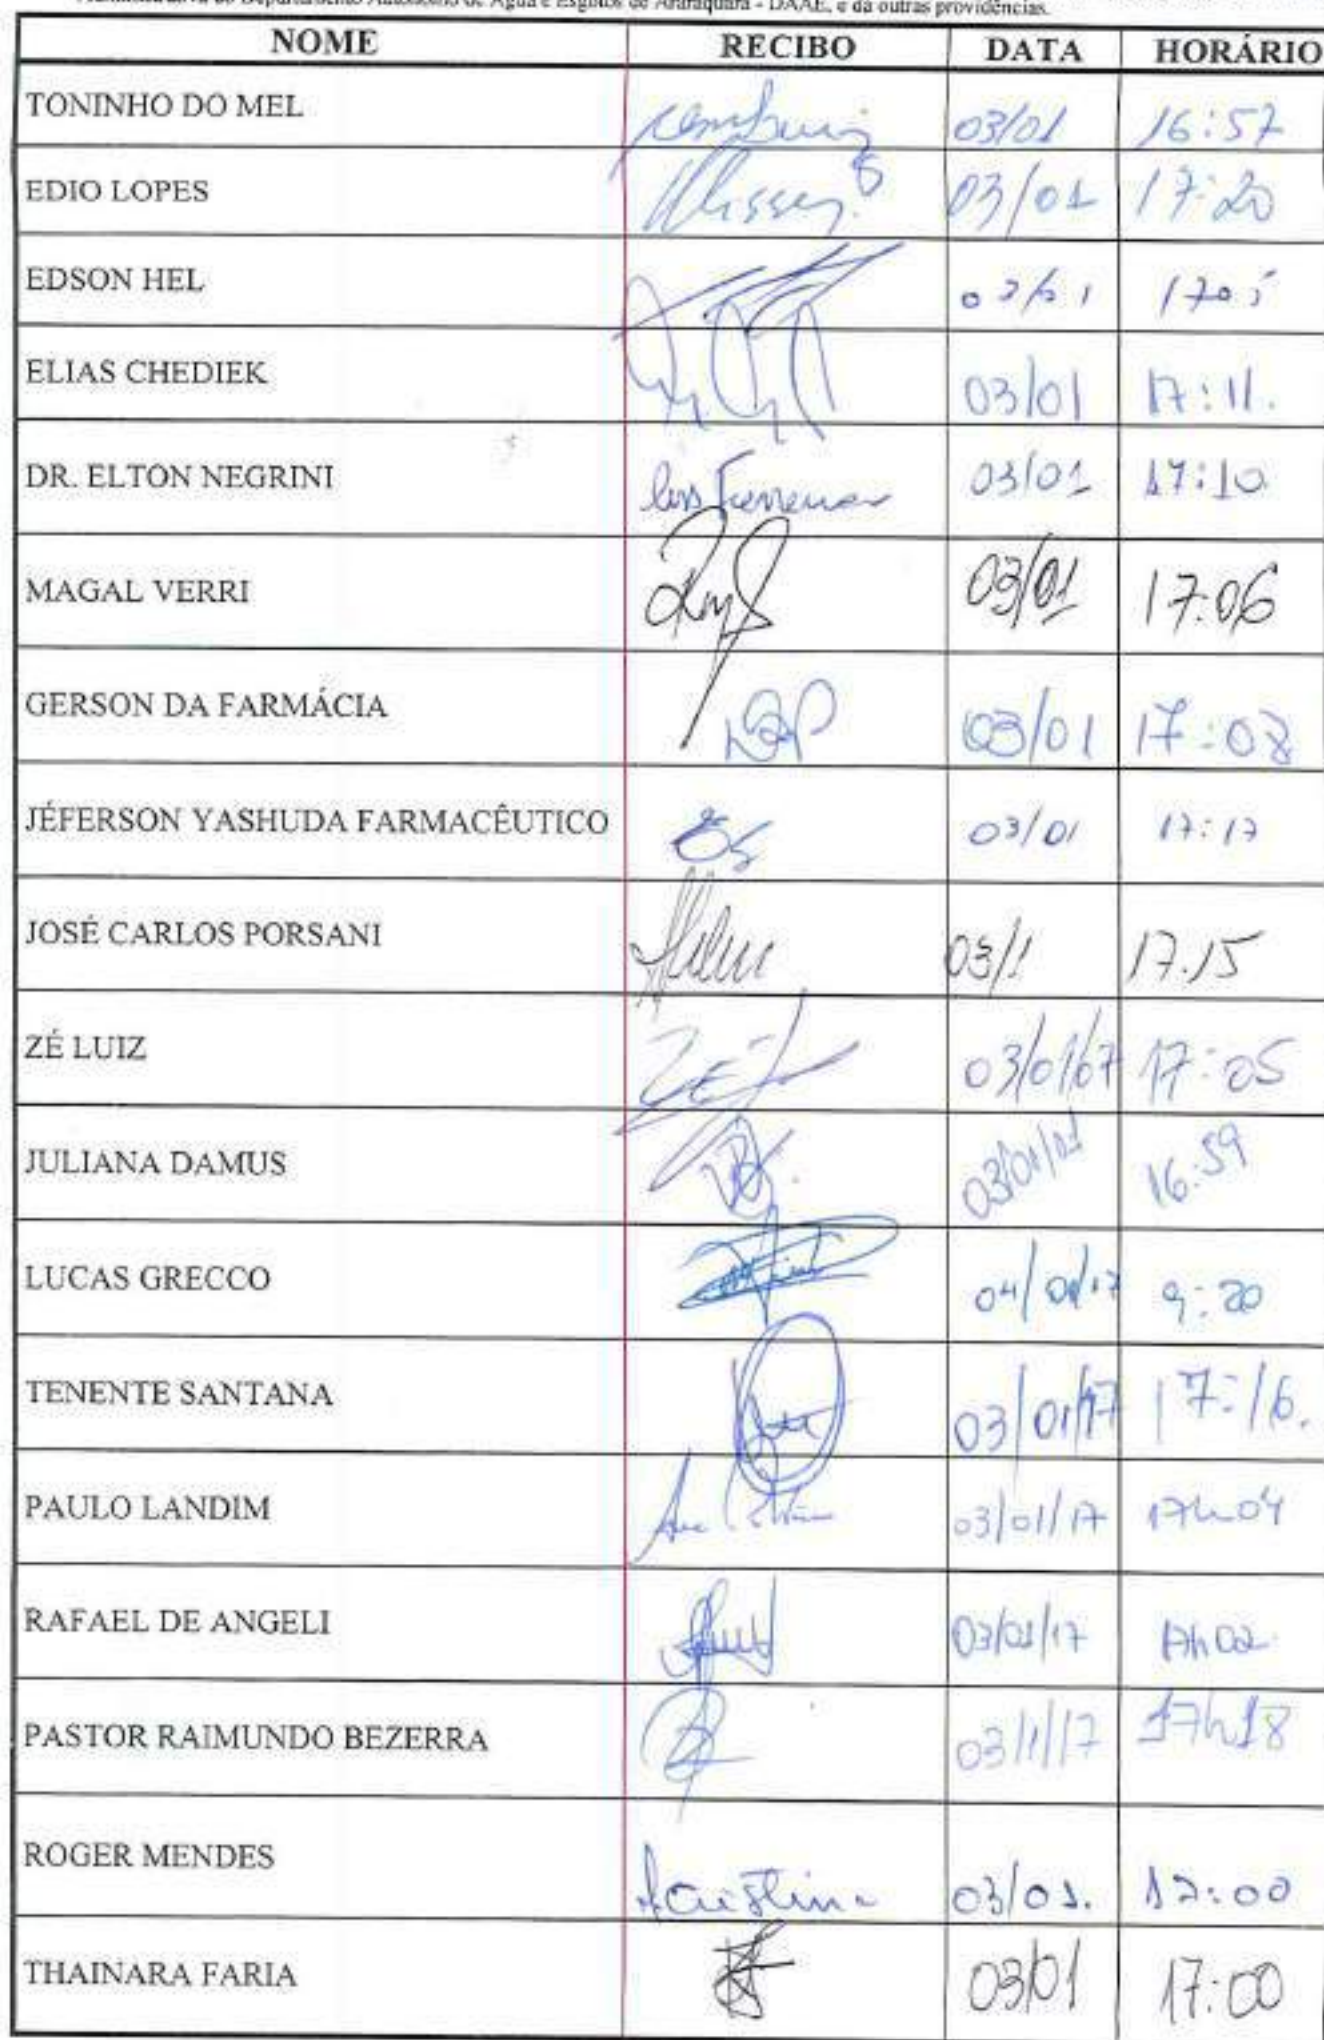 Administrativa do Departamento Autônomo de Água e Esgotos de Araraquara - DAAE, e dá outras providências.
NOME RECIBO DATA HORÁRIO
TONINHO DO MEL 03/01 16:57
EDIO LOPES 03/01 17:20
EDSON HEL
ELIAS CHEDIEK 03/01 17:11.
DR. ELTON NEGRINI 03/01 17:10
MAGAL VERRI 03/01 17:06
GERSON DA FARMÁCIA 03/01 17:08
JÉFERSON YASHUDA FARMACÊUTICO 03/01 17:17
JOSÉ CARLOS PORSANI 03/1 17.15
ZÉ LUIZ 03/01/07 17:05
JULIANA DAMUS 03/01/01 16:59
LUCAS GRECCO 04/01/17 9:20
TENENTE SANTANA 03/01/17 17:16.
PAULO LANDIM 03/01/17 17h04
RAFAEL DE ANGELI 03/01/17 17h02
PASTOR RAIMUNDO BEZERRA 03/1/17 17h18
ROGER MENDES 03/01. 17:00
THAINARA FARIA 03/01 17:00